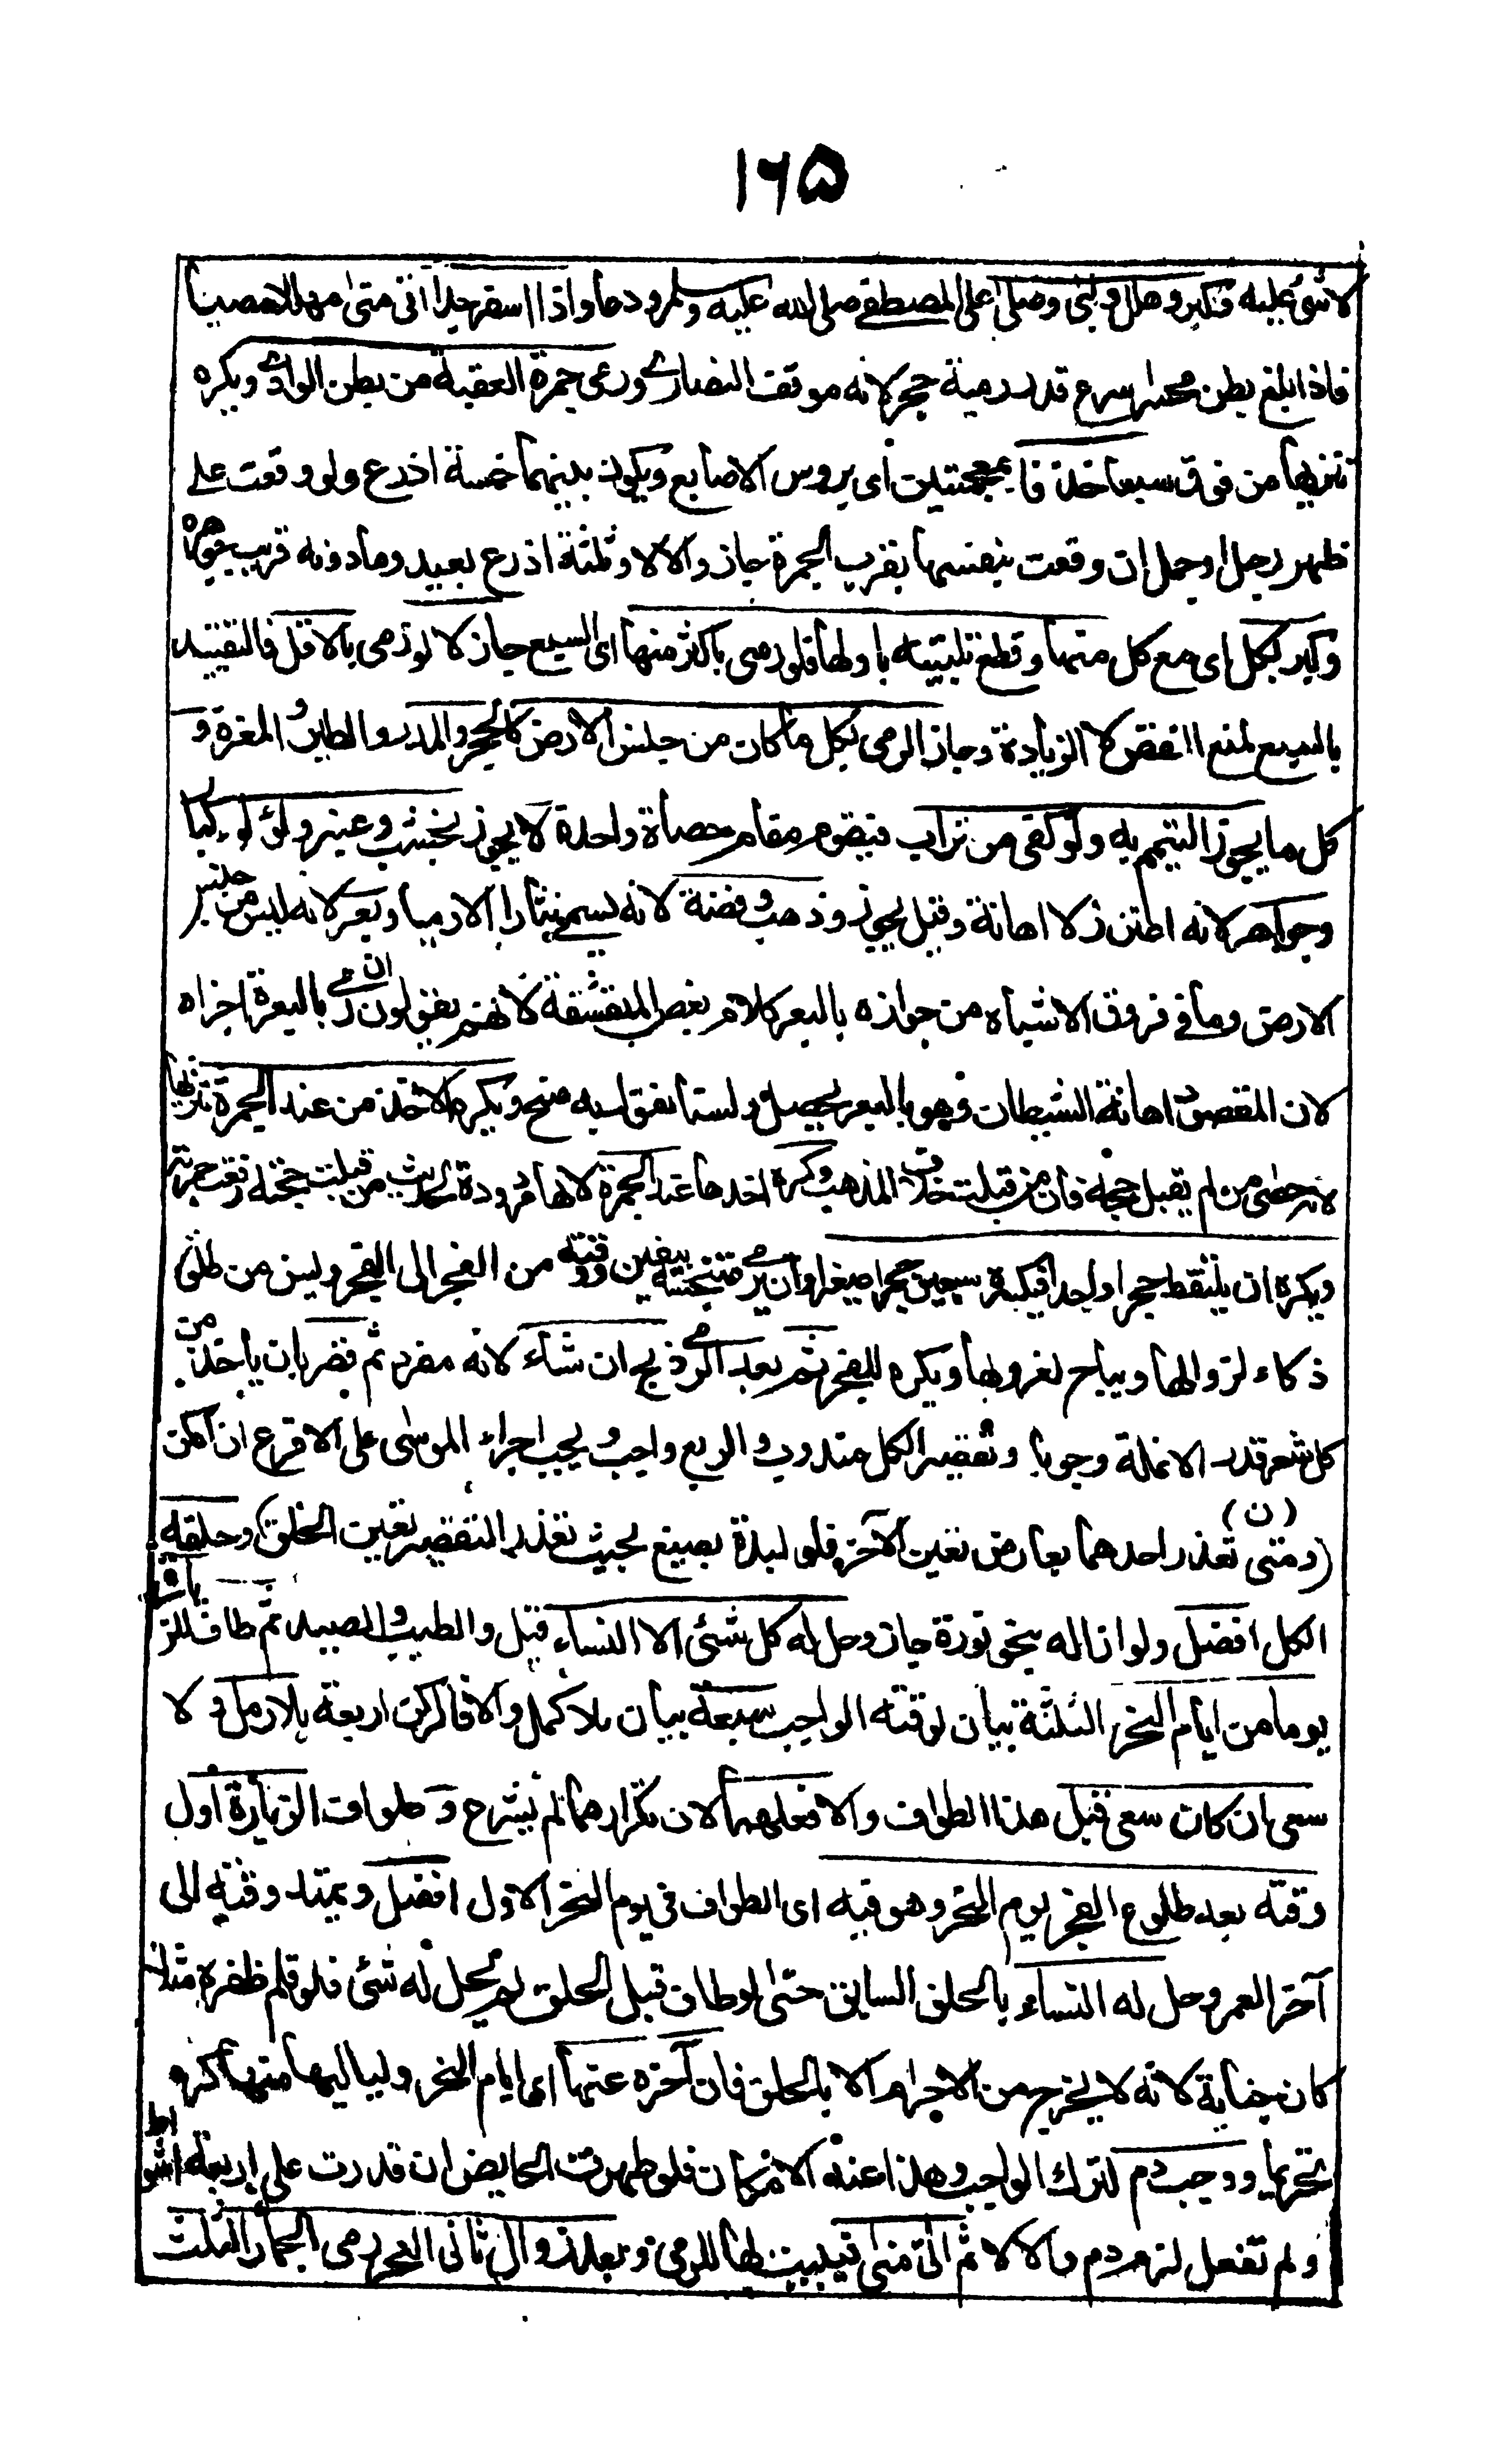 ١٦٥
لا شئ عليه وكبر وهلل ولبى وصلى على المصطفى صلى الله عليه وسلم ودعا واذا اسفر جدا اتى منى مهللا مصليا
فاذا بلغ بطن محسر اسرع قدر رمية حجر لانه موقف النصارى ورمى جمرة العقبة من بطن الوادى ويكره
تنزيها من فوق سبعا خذفا بمعجمتين اى بروس الاصابع ويكون بينهما خمسة اذرع ولو وقعت على
ظهر رجل او جمل ان وقعت بنفسها بقرب الجمرة جاز والا لا وثلثة اذرع بعيد وما دونه قريب جوهره
وكبر بكل اى مع كل منها وقطع تلبيته باولها فلو رمى باكثر منها اى السبع جاز لا لو رمى بالاقل فالتقييد
بالسبع لمنع النقص لا الزيادة وجاز الرمى بكل ما كان من جنس الارض كالحجر والمدر والطين والمغرة و
كل ما يجوز التيمم به ولو كفى من تراب فيقوم مقام حصاة واحدة لا يجوز بخشب وعنبر ولؤلوء كبا
وجواهر لانه اعزاز لا اهانة وقيل يجوز وذهب وفضة لانه يسمى نثارا لا رميا وبعر لانه ليس من جنس
الارض وما فى فروق الاشباه من جوازه بالبعر كلام بعض المتقشفة لانهم يقولون ان رمى بالبعرة اجزاه
لان المقصود اهانة الشيطان وهو بالبعر يحصل ولسنا نقول به منح ويكره الاخذ من عند الجمرة تنزيها
لانه حصى من لم يقبل حجه فان من قبلت خلاف المذهب وكره اخذها عند الجمرة لانها مردودة لحديث من قبلت حجته رفعت جمرته
ويكره ان يلتقط حجرا واحدا فيكسره سبعين حجرا صغيرا وان يرمى متنجسة بيقين ووقته من الفجر الى الفجر وليس من طلوع
ذكاء لزوالها ويباح لغروبها ويكره للفجر ثم بعد الرمى ذبح ان شاء لانه مفرد ثم قصر بان ياخذ من
كل شعر قدر الانملة وجوبا وتقصير الكل مندوب والربع واجب ويجب اجراء الموسى على الاقرع ان امكن
(ومتى تعذر احدهما بعارض تعين الآخر فلو لبده بصمغ بحيث تعذر التقصير تعين الحلق) وحلقه
(ن)
الكل افضل ولو ازاله بنحو نورة جاز وحل له كل شئ الا النساء قيل والطيب والصيد ثم طاف للزيارة
يوما من ايام النحر الثلثة بيان لوقته الواجب سبعة بيان للاكمل والا فالركن اربعة بلا رمل ولا
سعى ان كان سعى قبل هذا الطواف والا فعلهما لان تكرارهما لم يشرع و طواف الزيارة اول
وقته بعد طلوع الفجر يوم النحر وهو فيه اى الطواف فى يوم النحر الاول افضل ويمتد وقته الى
آخر العمر وحل له النساء بالحلق السابق حتى لو طاف قبل الحلق لم يحل له شئ فلو قلم ظفره مثلا
كان جناية لانه لا يخرج من الاحرام الا بالحلق فان آخره عنها اى ايام النحر ولياليها منها كره
تحريما ووجب دم لترك الواجب وهذا عند الامكان فلو طهرت الحايض ان قدرت على اربعة اشواط
ولم تفعل لزم دم والا لا ثم اتى منى فيبيت بها للرمى وبعد زوال ثانى النحر رمى الجمار الثلث